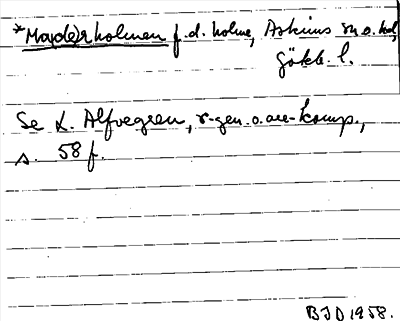 *Ma(de)rholmen f.d. holme, Askims sn o. hd,
Götebl. l.
Se L. Alfvegren, r-gen. o. are-komp.,
s. 58 f.
BJD 1958.